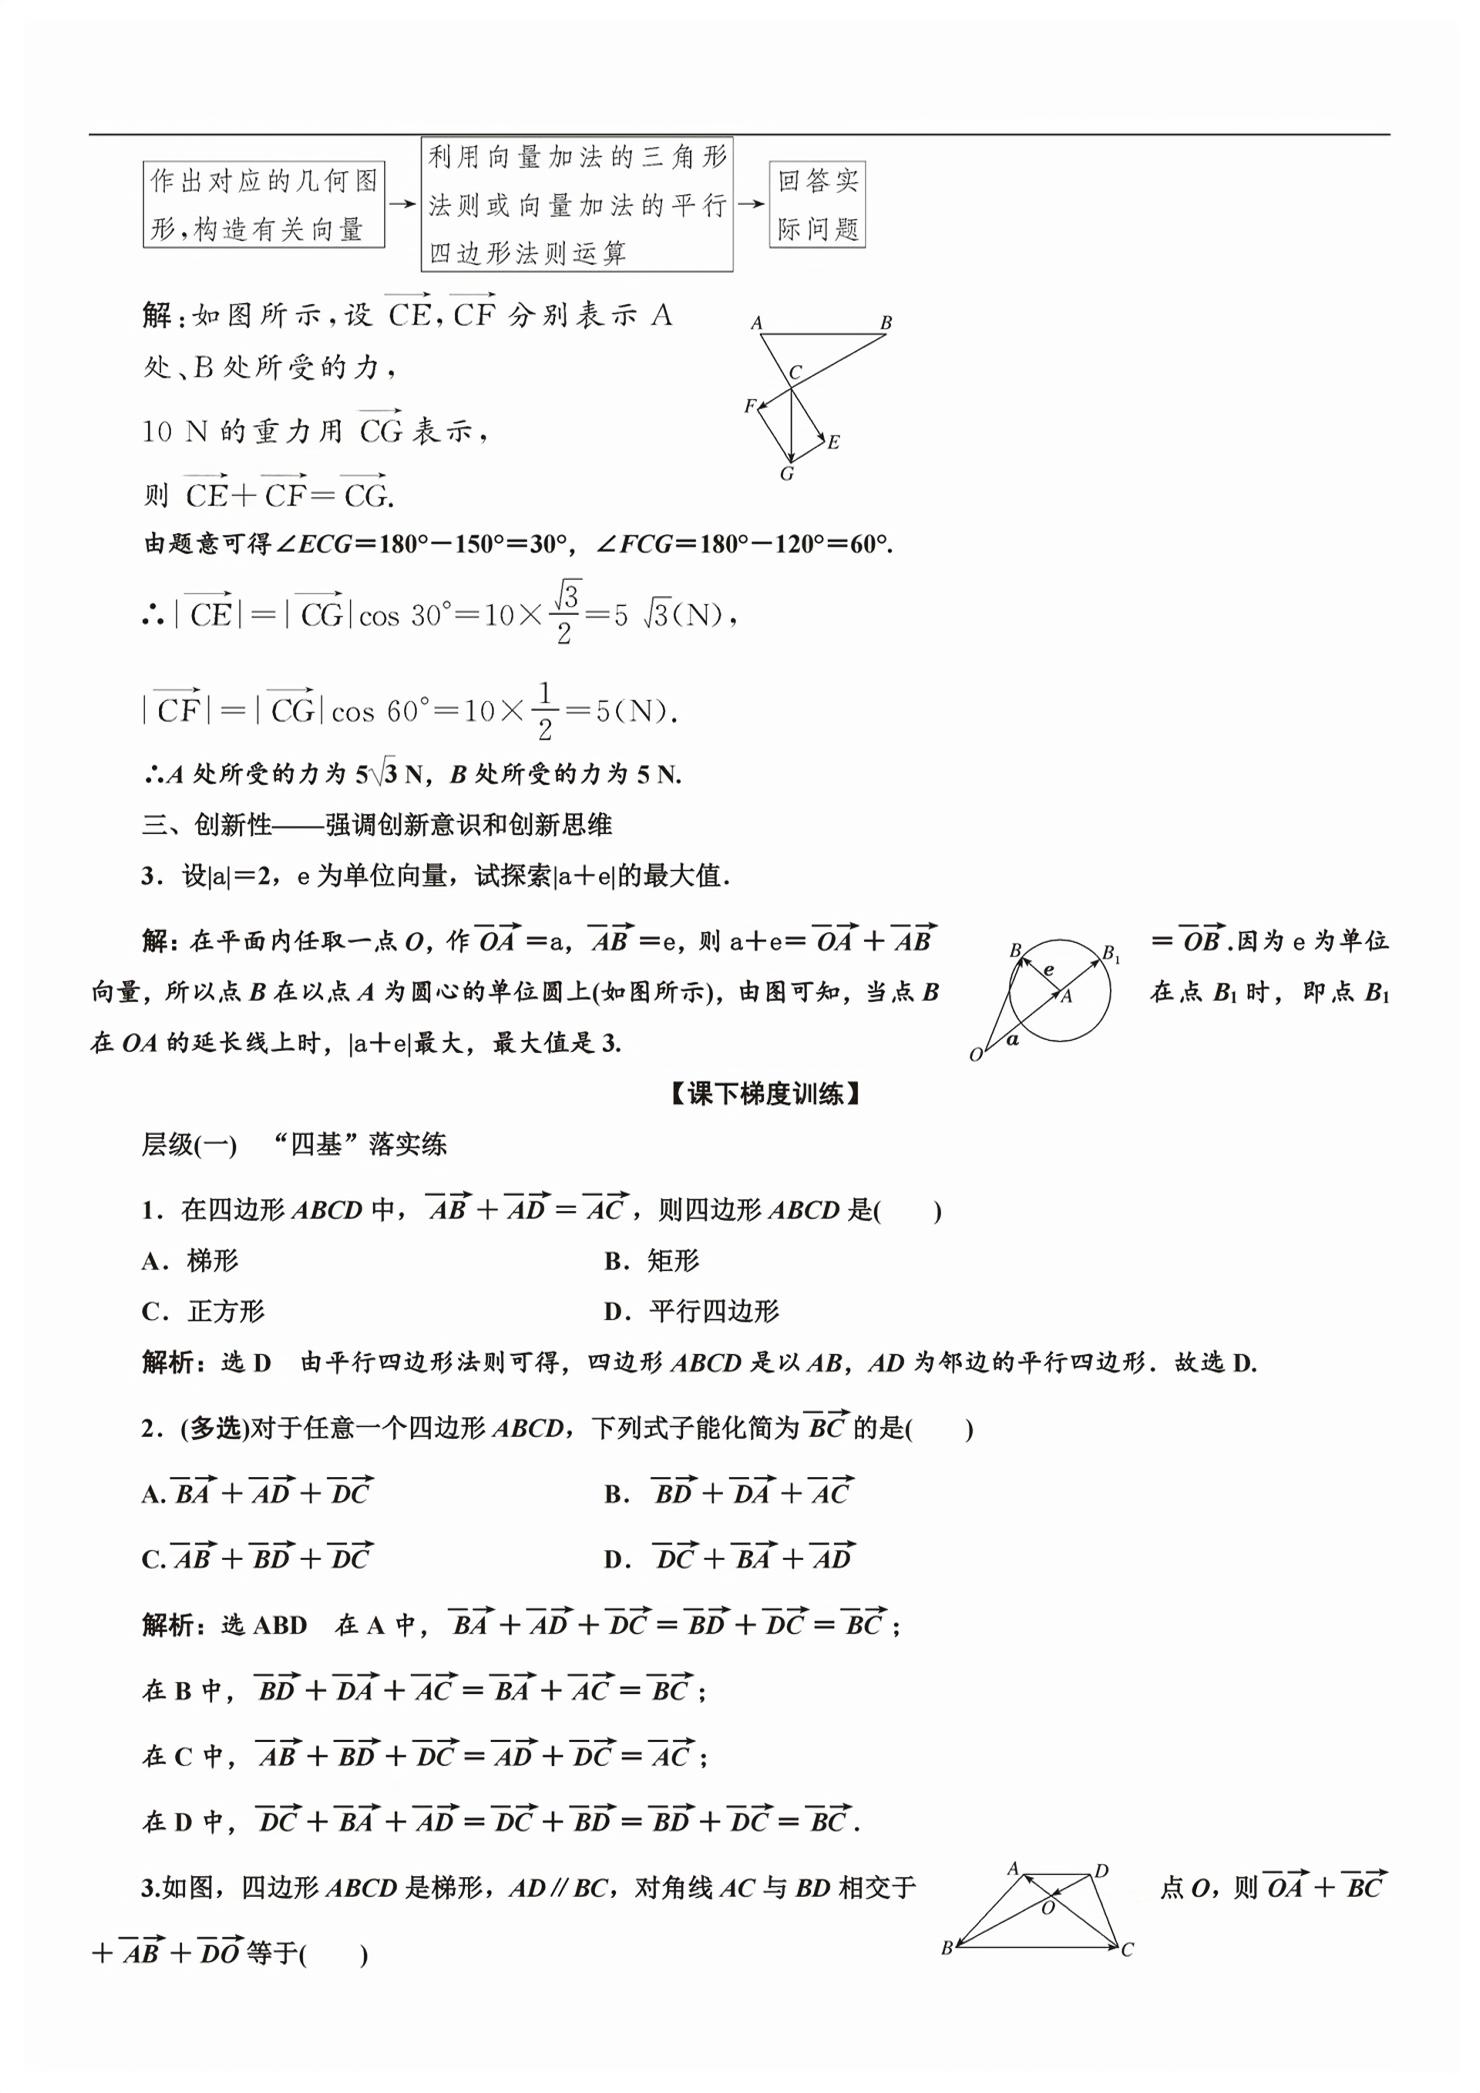 作出对应的几何图形,构造有关向量 → 利用向量加法的三角形法则或向量加法的平行四边形法则运算 → 回答实际问题
解:如图所示,设 $\overrightarrow{CE}$,$\overrightarrow{CF}$ 分别表示 A
处、B 处所受的力,
10 N 的重力用 $\overrightarrow{CG}$ 表示,
则 $\overrightarrow{CE}+\overrightarrow{CF}=\overrightarrow{CG}$.
A B C F E G
由题意可得∠ECG=180°-150°=30°,∠FCG=180°-120°=60°.
∴|$\overrightarrow{CE}$|=|$\overrightarrow{CG}$|cos 30°=10×$\frac{\sqrt{3}}{2}$=5 $\sqrt{3}$(N),
|$\overrightarrow{CF}$|=|$\overrightarrow{CG}$|cos 60°=10×$\frac{1}{2}$=5(N).
∴A 处所受的力为 5$\sqrt{3}$ N,B 处所受的力为 5 N.
三、创新性——强调创新意识和创新思维
3.设|a|=2,e 为单位向量,试探索|a+e|的最大值.
解:在平面内任取一点 O,作$\overrightarrow{OA}$=a,$\overrightarrow{AB}$=e,则 a+e=$\overrightarrow{OA}$+$\overrightarrow{AB}$=$\overrightarrow{OB}$.因为 e 为单位
向量,所以点 B 在以点 A 为圆心的单位圆上(如图所示),由图可知,当点 B 在点 B₁ 时,即点 B₁
在 OA 的延长线上时,|a+e|最大,最大值是 3.
B B₁ e A a O
【课下梯度训练】
层级(一) “四基”落实练
1.在四边形 ABCD 中,$\overrightarrow{AB}$+$\overrightarrow{AD}$=$\overrightarrow{AC}$,则四边形 ABCD 是( )
A.梯形 B.矩形
C.正方形 D.平行四边形
解析:选 D 由平行四边形法则可得,四边形 ABCD 是以 AB,AD 为邻边的平行四边形.故选 D.
2.(多选)对于任意一个四边形 ABCD,下列式子能化简为$\overrightarrow{BC}$的是( )
A.$\overrightarrow{BA}$+$\overrightarrow{AD}$+$\overrightarrow{DC}$ B.$\overrightarrow{BD}$+$\overrightarrow{DA}$+$\overrightarrow{AC}$
C.$\overrightarrow{AB}$+$\overrightarrow{BD}$+$\overrightarrow{DC}$ D.$\overrightarrow{DC}$+$\overrightarrow{BA}$+$\overrightarrow{AD}$
解析:选 ABD 在 A 中,$\overrightarrow{BA}$+$\overrightarrow{AD}$+$\overrightarrow{DC}$=$\overrightarrow{BD}$+$\overrightarrow{DC}$=$\overrightarrow{BC}$;
在 B 中,$\overrightarrow{BD}$+$\overrightarrow{DA}$+$\overrightarrow{AC}$=$\overrightarrow{BA}$+$\overrightarrow{AC}$=$\overrightarrow{BC}$;
在 C 中,$\overrightarrow{AB}$+$\overrightarrow{BD}$+$\overrightarrow{DC}$=$\overrightarrow{AD}$+$\overrightarrow{DC}$=$\overrightarrow{AC}$;
在 D 中,$\overrightarrow{DC}$+$\overrightarrow{BA}$+$\overrightarrow{AD}$=$\overrightarrow{DC}$+$\overrightarrow{BD}$=$\overrightarrow{BD}$+$\overrightarrow{DC}$=$\overrightarrow{BC}$.
3.如图,四边形 ABCD 是梯形,AD∥BC,对角线 AC 与 BD 相交于点 O,则$\overrightarrow{OA}$+$\overrightarrow{BC}$
+$\overrightarrow{AB}$+$\overrightarrow{DO}$等于( )
A D O B C